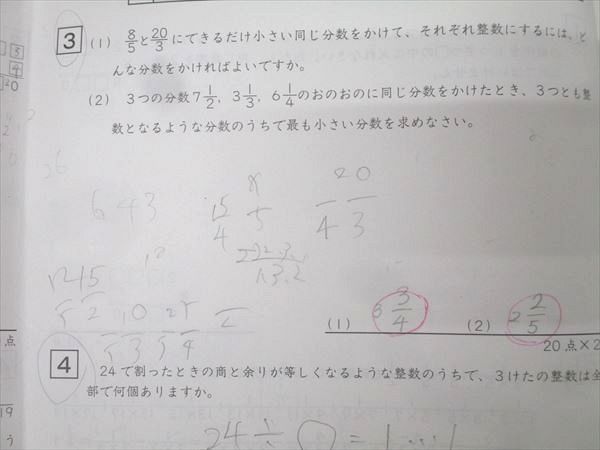 3 (1) 8/5と20/3にできるだけ小さい同じ分数をかけて、それぞれ整数にするには、ど
んな分数をかければよいですか。
(2) 3つの分数7 1/2, 3 1/3, 6 1/4のおのおのに同じ分数をかけたとき、3つとも整
数となるような分数のうちで最も小さい分数を求めなさい。
26
643
15/4 8/5
/4 20/3
12 15
5 2 10 25
5 3 5 4
(1) 3 3/4 (2) 2 2/5
点
20点×2
4 24で割ったときの商と余りが等しくなるような整数のうちで、3けたの整数は全
部で何個ありますか。
19
う
24÷○=1…1